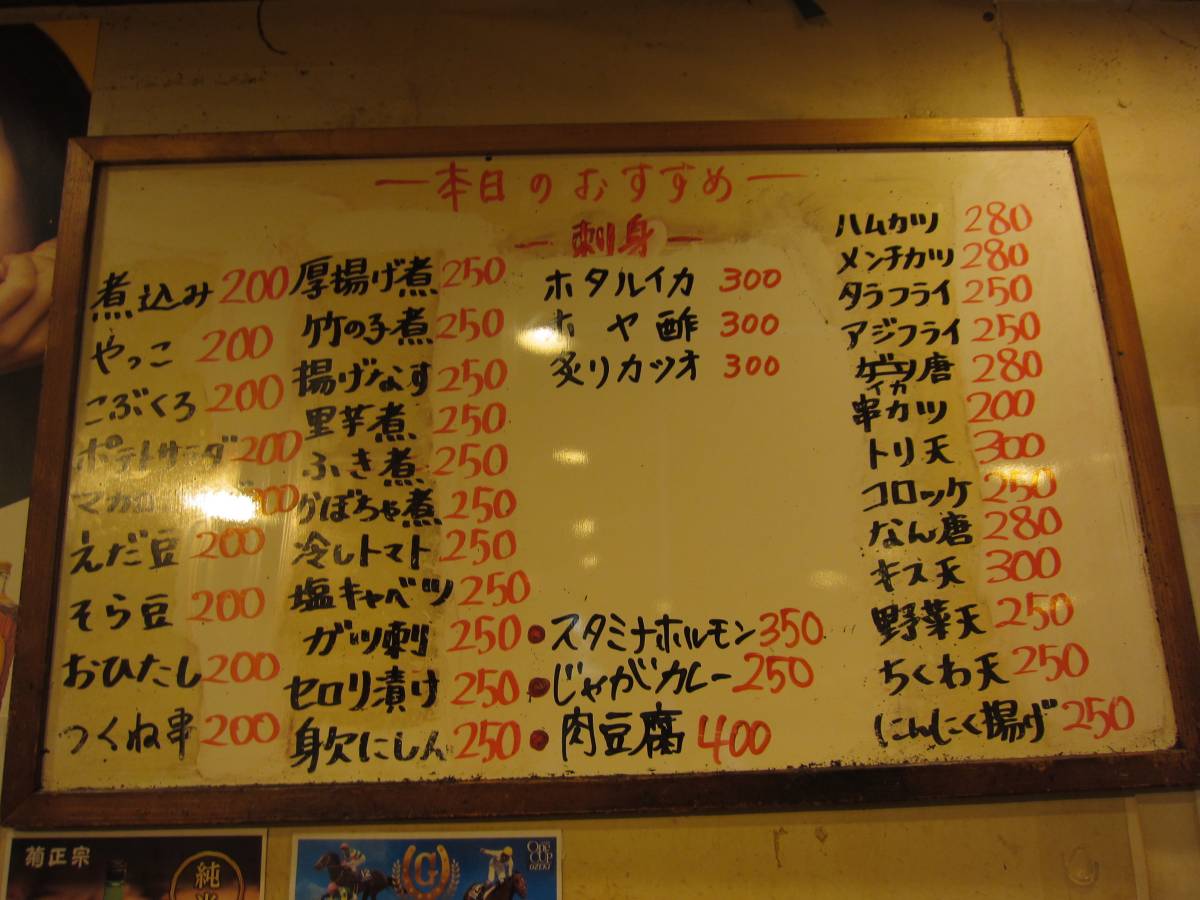 本日のおすすめ
煮込み 200
やっこ 200
こぶくろ 200
ポテトサラダ 200
マカロ
えだ豆 200
そら豆 200
おひたし 200
つくね串 200
厚揚げ煮 250
竹の子煮 250
揚げなす 250
里芋煮 250
ふき煮 250
かぼちゃ煮 250
冷しトマト 250
塩キャベツ 250
ガツ刺 250
セロリ漬け 250
身欠にしん 250
刺身
ホタルイカ 300
ホヤ酢 300
炙りカツオ 300
スタミナホルモン 350
じゃがカレー 250
肉豆腐 400
ハムカツ 280
メンチカツ 280
タラフライ 250
アジフライ 250
イカ
唐 280
串カツ 200
トリ天 300
コロッケ 250
なん唐 280
キス天 300
野菜天 250
ちくわ天 250
にんにく揚げ 250
菊正宗
純米
G
One CUP
OZEKI